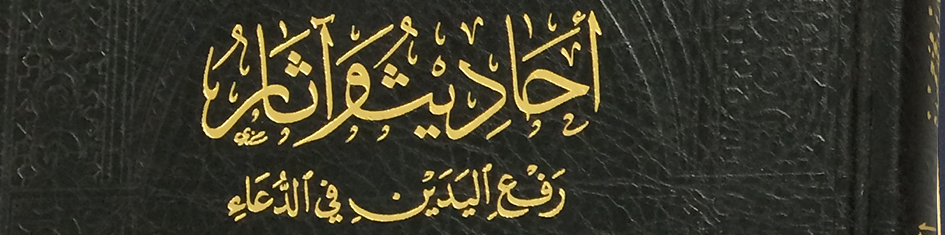 أَحَادِيثُ وَآثَارُ
رَفْعِ اليَدَيْنِ فِي الدُّعَاءِ